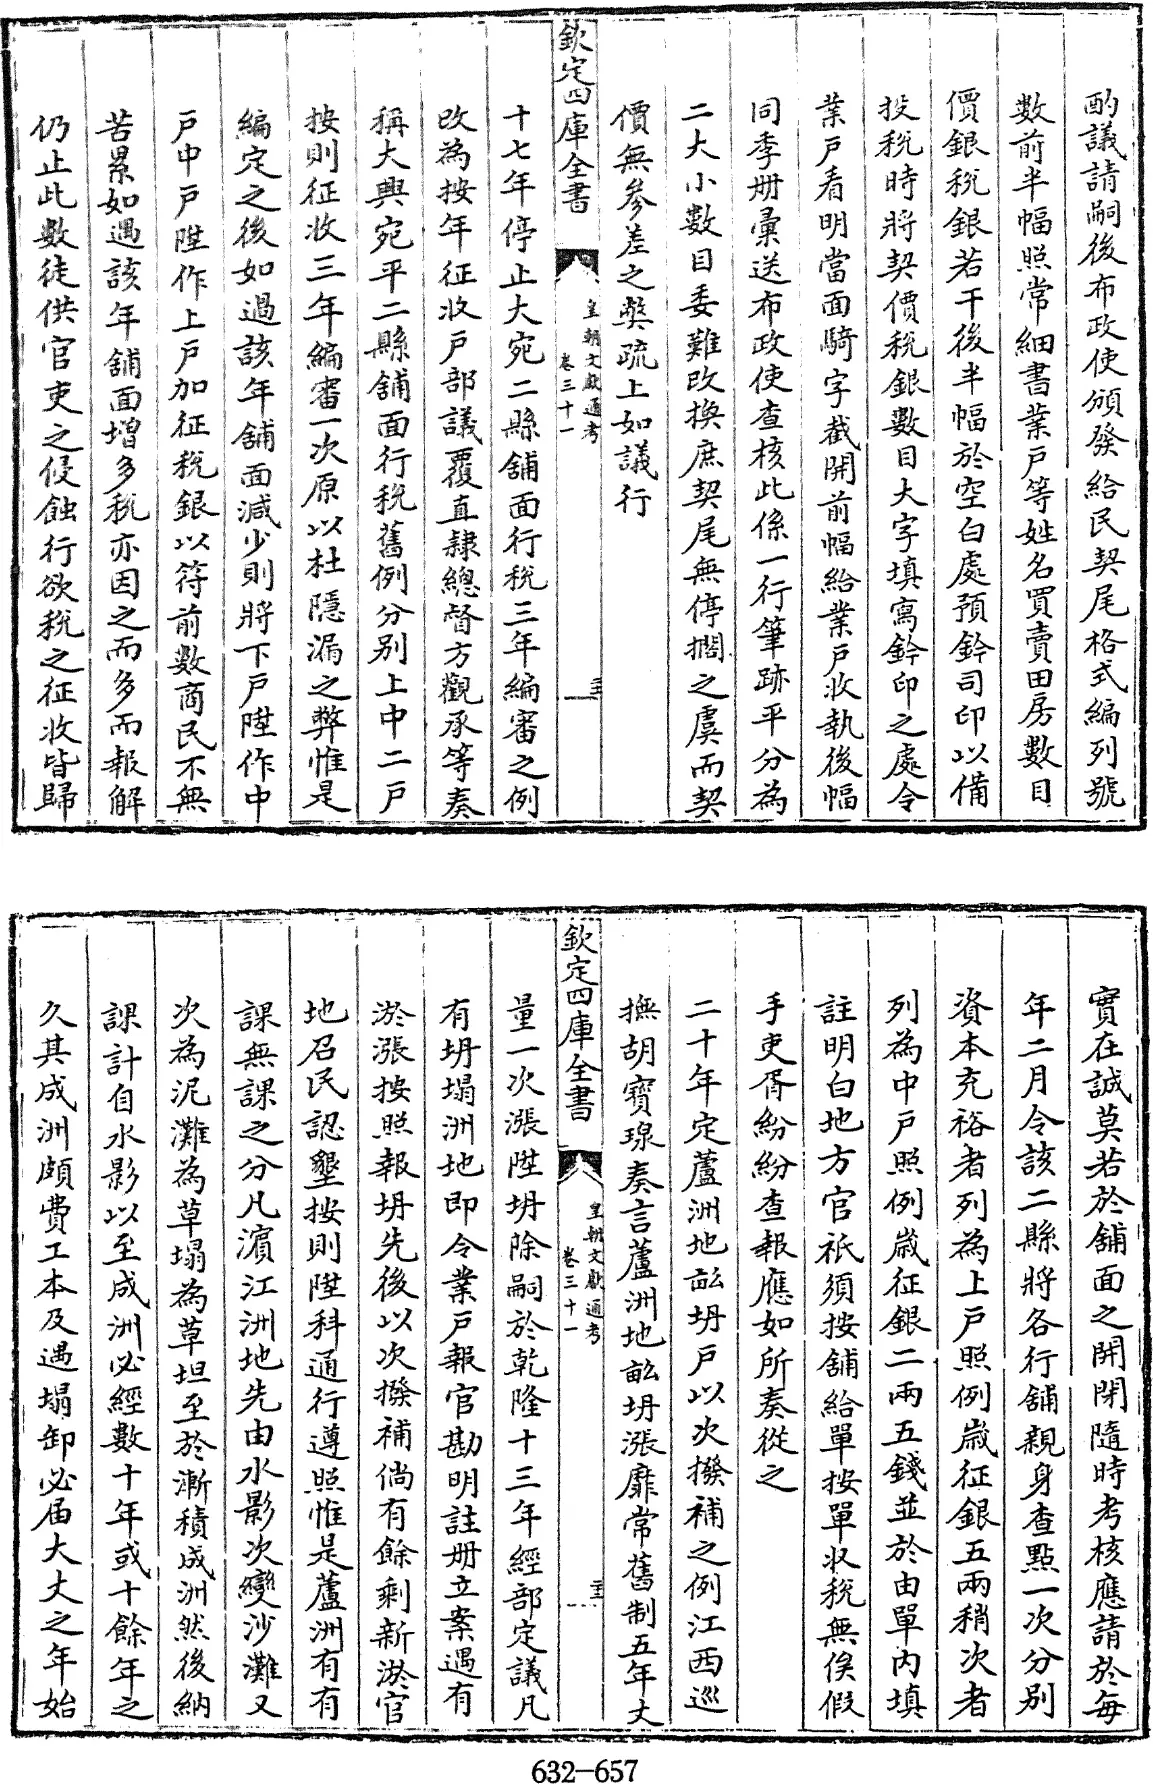 酌議請嗣後布政使頒發給民契尾格式編列號
數前半幅照常細書業戶等姓名買賣田房數目
價銀稅銀若干後半幅於空白處預鈐司印以備
投稅時將契價稅銀數目大字填寫鈐印之處令
業戶看明當面騎字截開前幅給業戶收執後幅
同季册彚送布政使查核此係一行筆跡平分為
二大小數目委難改換庶契尾無停擱之虞而契
價無參差之獘疏上如議行
欽定四庫全書
皇朝文獻通考
卷三十一
三十
十七年停止大宛二縣舖面行稅三年編審之例
改為按年征收戶部議覆直隸總督方觀承等奏
稱大興宛平二縣舖面行稅舊例分別上中二戶
按則征收三年編審一次原以杜隱漏之弊惟是
編定之後如遇該年舖面減少則將下戶陞作中
戶中戶陞作上戶加征稅銀以符前數商民不無
苦累如遇該年舖面增多稅亦因之而多而報解
仍止此數徒供官吏之侵蝕行欲稅之征收皆歸
實在誠莫若於舖面之開閉隨時考核應請於每
年二月令該二縣將各行舖親身查點一次分別
資本充裕者列為上戶照例歲征銀五兩稍次者
列為中戶照例歲征銀二兩五錢並於由單內填
註明白地方官祇須按舖給單按單收稅無俟假
手吏胥紛紛查報應如所奏從之
二十年定蘆洲地畝坍戶以次撥補之例江西巡
撫胡寶瑔奏言蘆洲地畝坍漲靡常舊制五年丈
欽定四庫全書
皇朝文獻通考
卷三十一
量一次漲陞坍除嗣於乾隆十三年經部定議凡
有坍塌洲地即令業戶報官勘明註册立案遇有
淤漲按照報坍先後以次撥補倘有餘剩新淤官
地召民認墾按則陞科通行遵照惟是蘆洲有有
課無課之分凡濱江洲地先由水影次變沙灘又
次為泥灘為草塌為草坦至於漸積成洲然後納
課計自水影以至成洲必經數十年或十餘年之
久其成洲頗費工本及遇塌卸必届大丈之年始
632-657